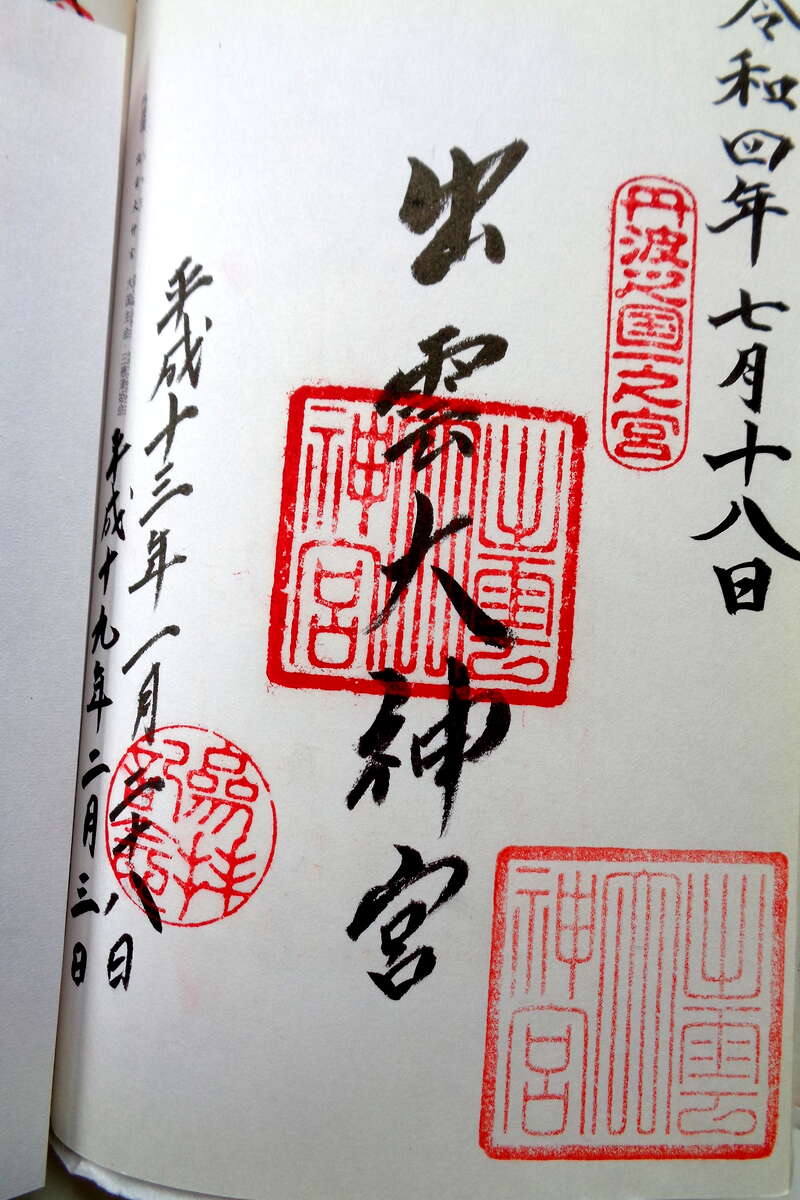 令和四年七月十八日
丹波之国一之宮
出雲大神宮
出雲大神宮
出雲大神宮
平成十三年一月二十八日
平成十九年二月三日